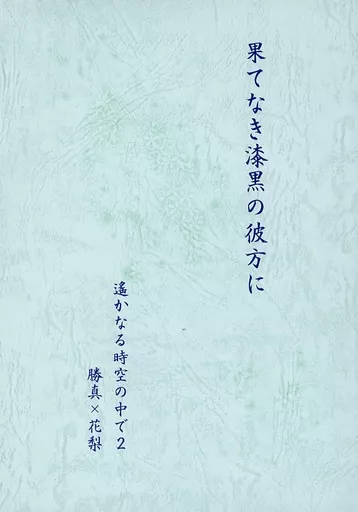 果てなき漆黒の彼方に
遙かなる時空の中で2
勝真×花梨